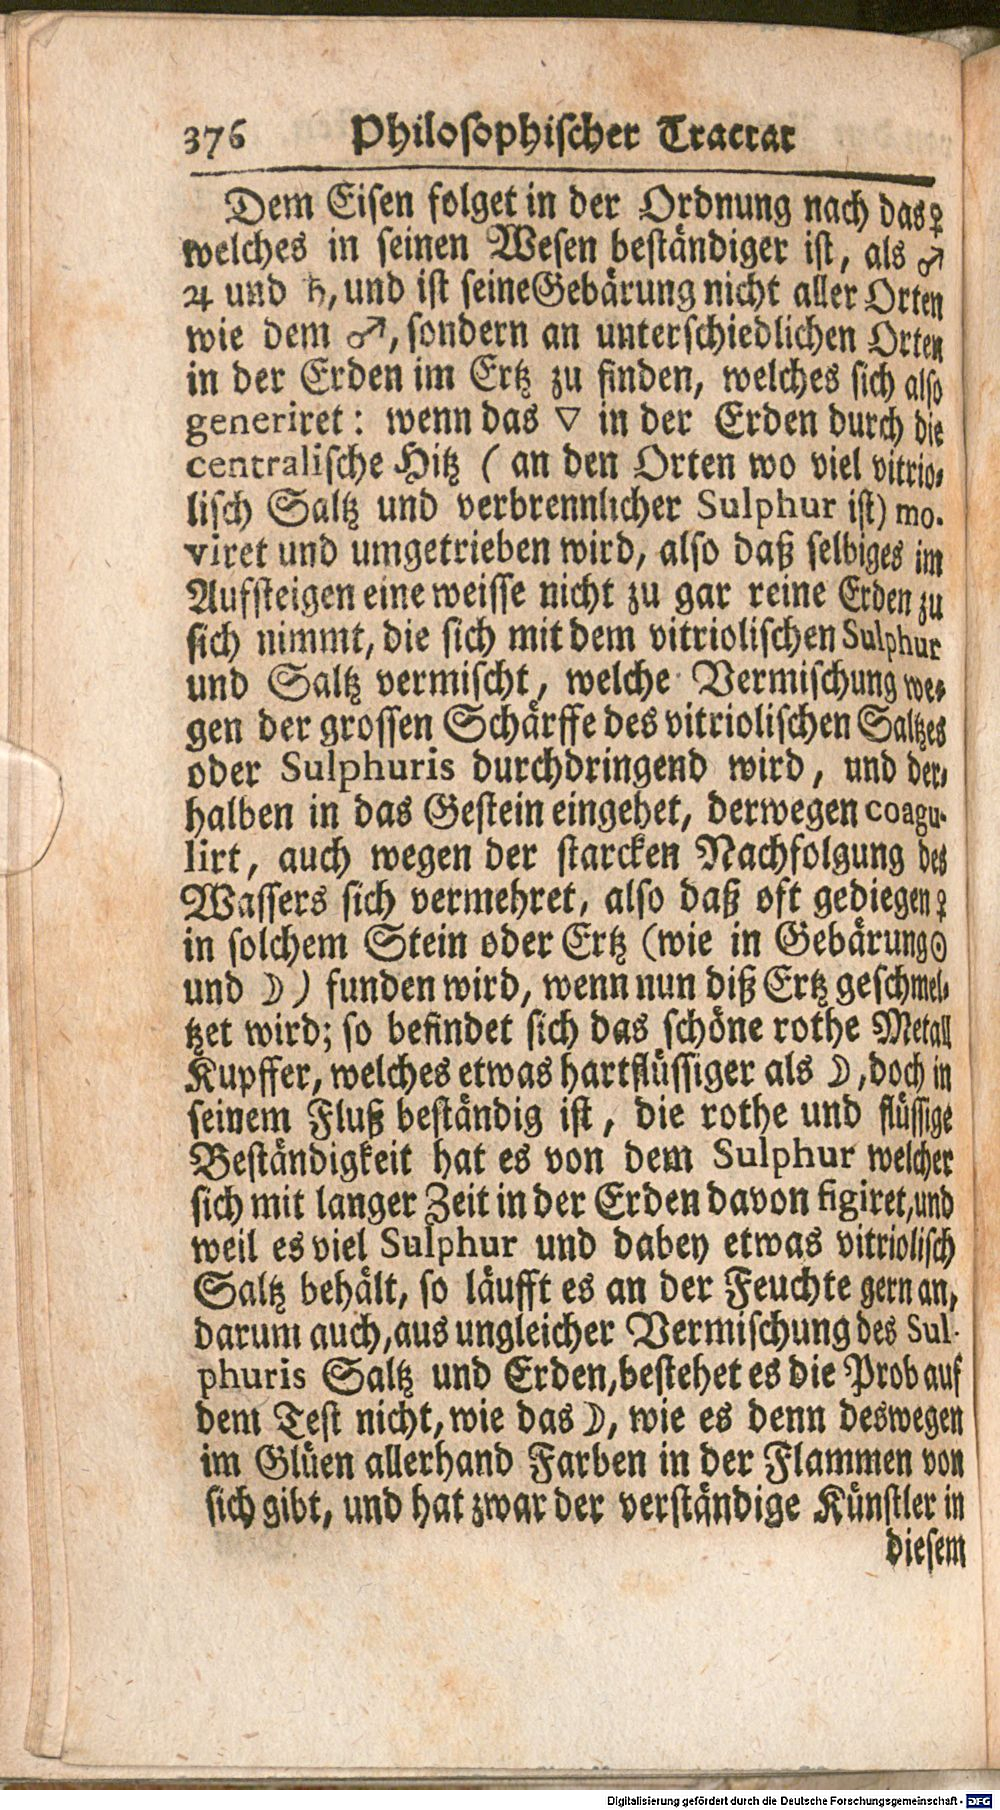 376 Philosophischer Tractat
Dem Eisen folget in der Ordnung nach das ♀
welches in seinen Wesen beständiger ist, als ♂
♃ und ♄, und ist seine Gebärung nicht aller Orten
wie dem ♂, sondern an unterschiedlichen Orten
in der Erden im Ertz zu finden, welches sich also
generiret: wenn das ▽ in der Erden durch die
centralische Hitz (an den Orten wo viel vitrio-
lisch Saltz und verbrennlicher Sulphur ist) mo-
viret und umgetrieben wird, also daß selbiges im
Aufsteigen eine weisse nicht zu gar reine Erden zu
sich nimmt, die sich mit dem vitriolischen Sulphur
und Saltz vermischt, welche Vermischung we-
gen der grossen Schärffe des vitriolischen Saltzes
oder Sulphuris durchdringend wird, und der-
halben in das Gestein eingehet, derwegen coagu-
lirt, auch wegen der starcken Nachfolgung des
Wassers sich vermehret, also daß oft gediegen ♀
in solchem Stein oder Ertz (wie in Gebärung ☉
und ☽) funden wird, wenn nun diß Ertz geschmel-
tzet wird; so befindet sich das schöne rothe Metall
Kupffer, welches etwas hartflüssiger als ☽, doch in
seinem Fluß beständig ist, die rothe und flüssige
Beständigkeit hat es von dem Sulphur welcher
sich mit langer Zeit in der Erden davon figiret, und
weil es viel Sulphur und dabey etwas vitriolisch
Saltz behält, so läufft es an der Feuchte gern an,
darum auch, aus ungleicher Vermischung des Sul-
phuris Saltz und Erden, bestehet es die Prob auf
dem Test nicht, wie das ☽, wie es denn deswegen
im Glüen allerhand Farben in der Flammen von
sich gibt, und hat zwar der verständige Künstler in
diesem
Digitalisierung gefördert durch die Deutsche Forschungsgemeinschaft - DFG